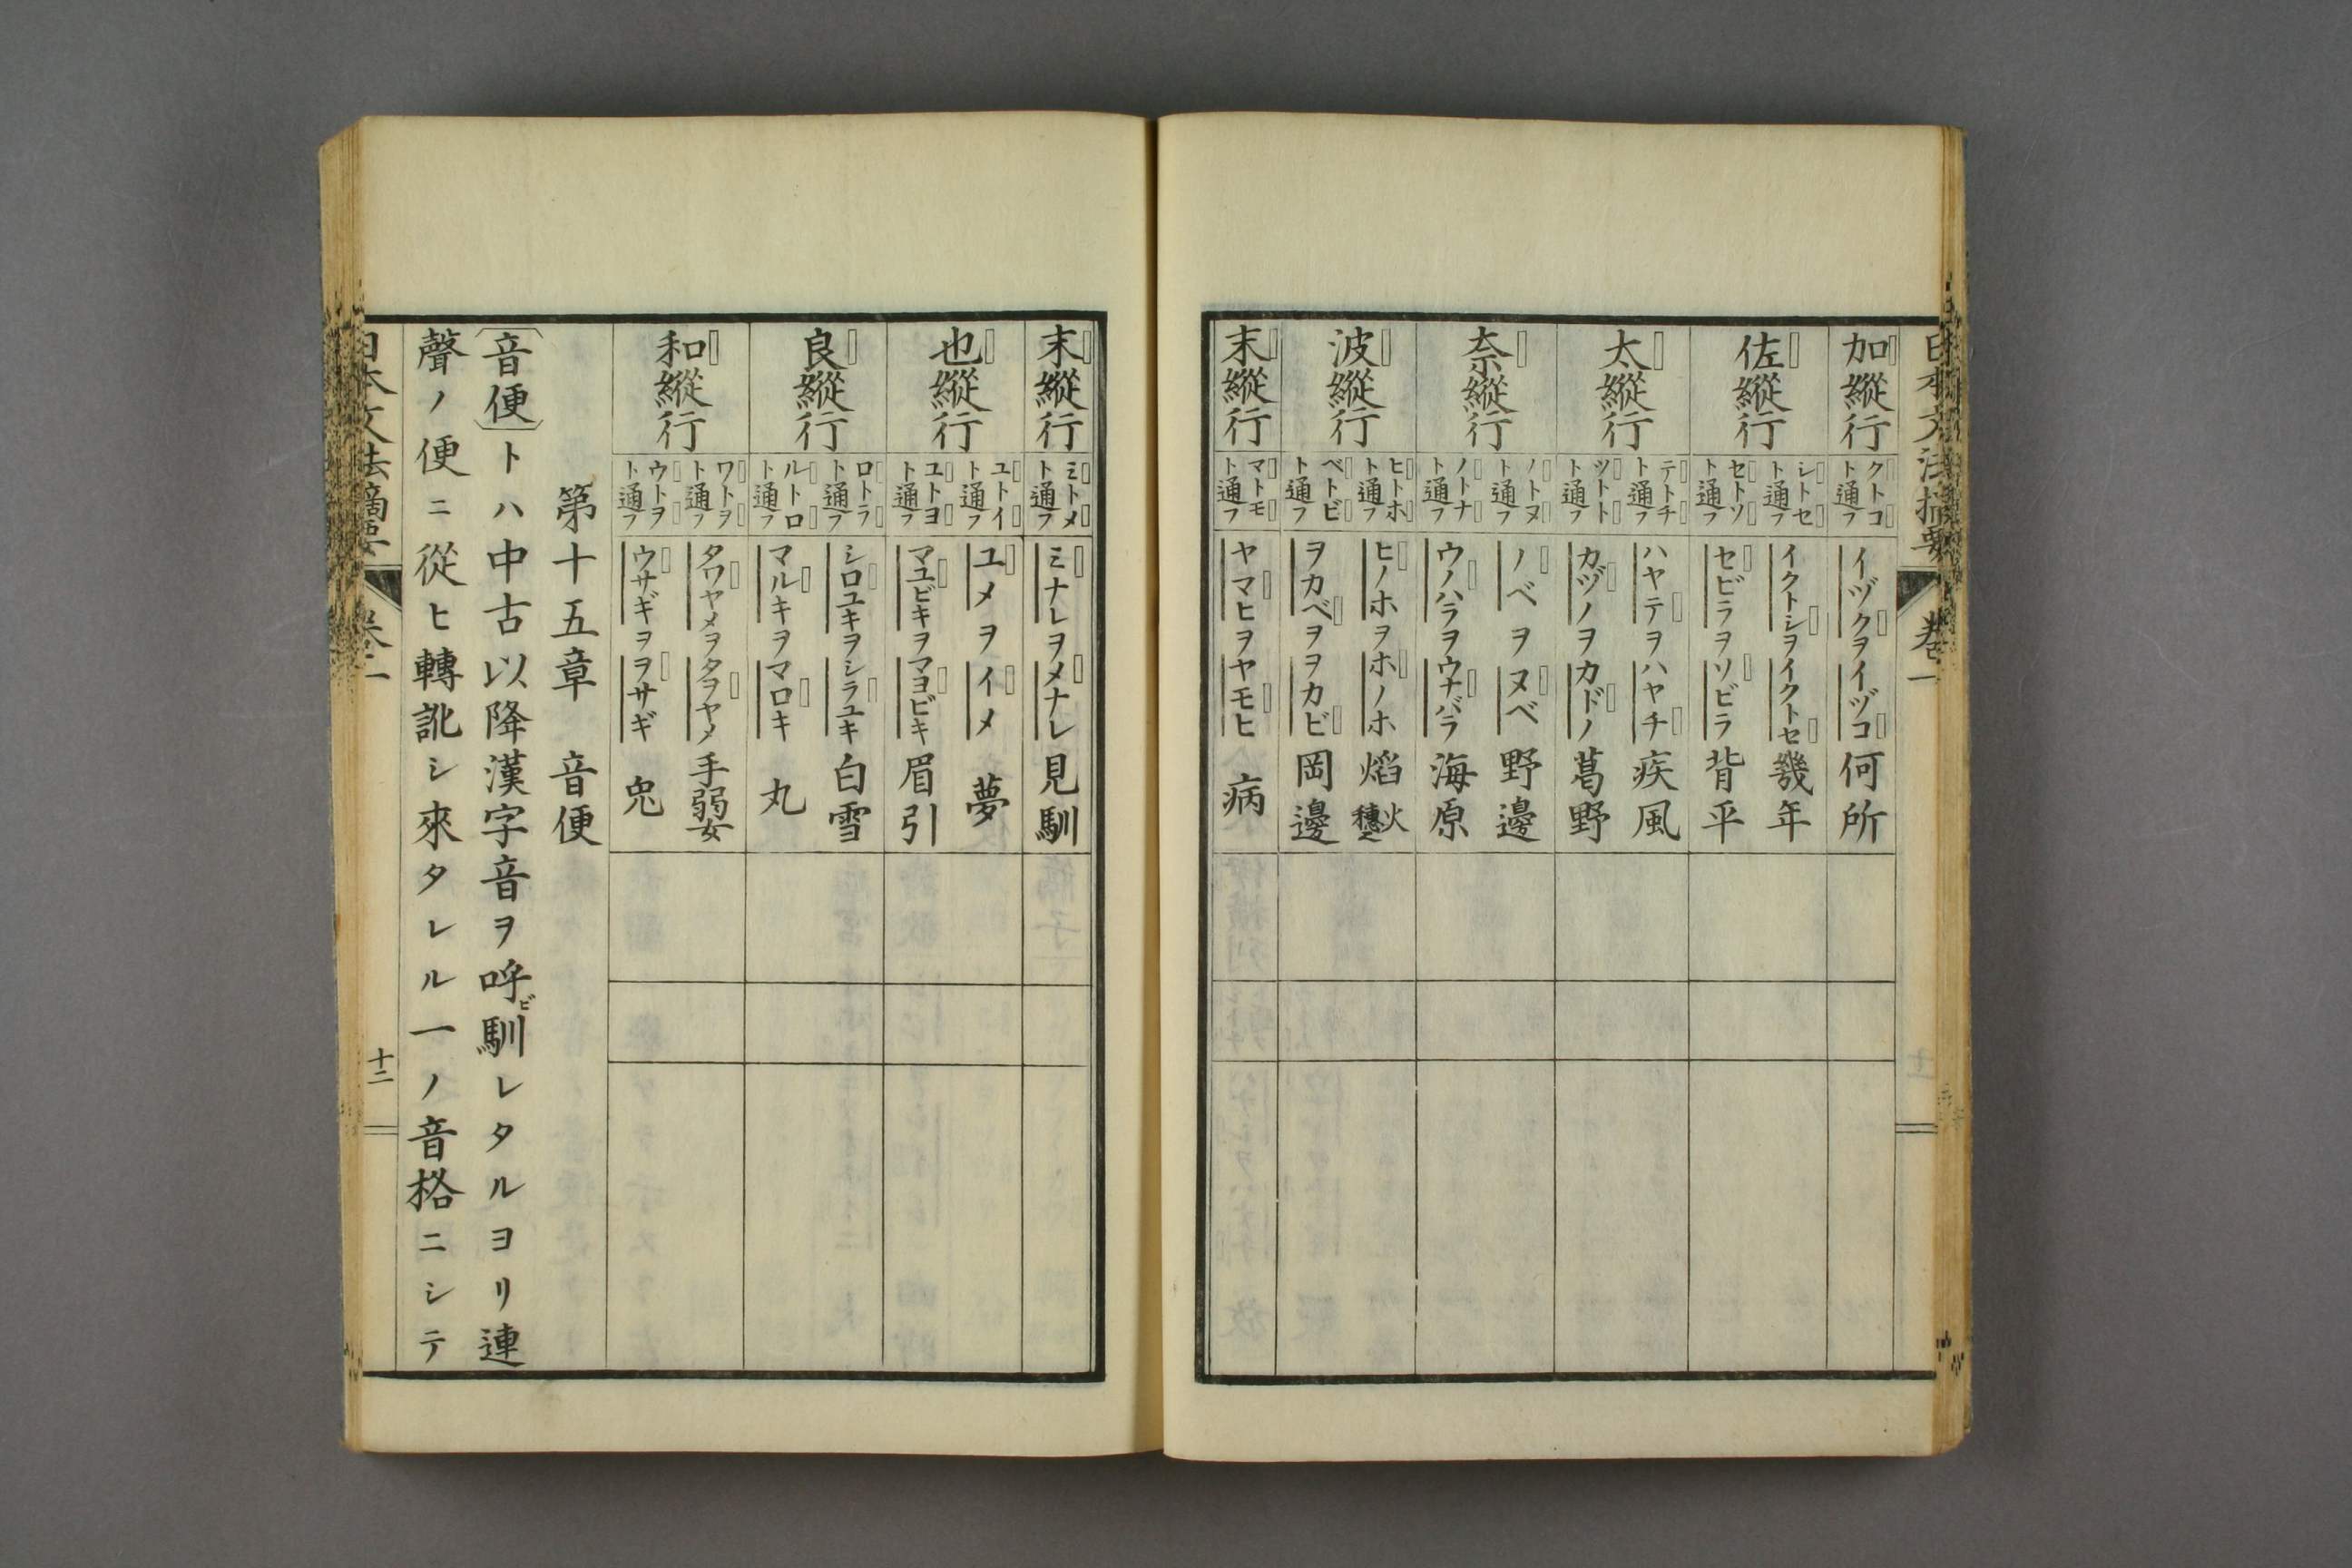 日本文法摘要 卷一
加縱行 クトコト通フ イヅクヲイヅコ 何所
佐縱行 シトセト通フ イクトシヲイクトセ 幾年
セトソト通フ セビラヲソビラ 背平
太縱行 テトチト通フ ハヤテヲハヤチ 疾風
ツトトト通フ カヅノヲカドノ 葛野
奈縱行 ノトヌト通フ ノベヲヌベ 野邊
ノトナト通フ ウノハラヲウナバラ 海原
波縱行 ヒトホト通フ ヒノホヲホノホ 焰 火穗
ベトビト通フ ヲカベヲヲカビ 岡邊
末縱行 マトモト通フ ヤマヒヲヤモヒ 病
末縱行 ミトメト通フ ミナレヲメナレ 見馴
也縱行 ユトイト通フ ユメヲイメ 夢
ユトヨト通フ マユビキヲマヨビキ 眉引
良縱行 ロトラト通フ シロユキヲシラユキ 白雪
ルトロト通フ マルキヲマロキ 丸
和縱行 ワトヲト通フ タワヤメヲタヲヤメ 手弱女
ウトヲト通フ ウサギヲヲサギ 兎
第十五章 音便
〔音便〕トハ中古以降漢字音ヲ呼ビ馴レタルヨリ連
聲ノ便ニ從ヒ轉訛シ來タレル一ノ音格ニシテ
日本文法摘要 卷一 十二